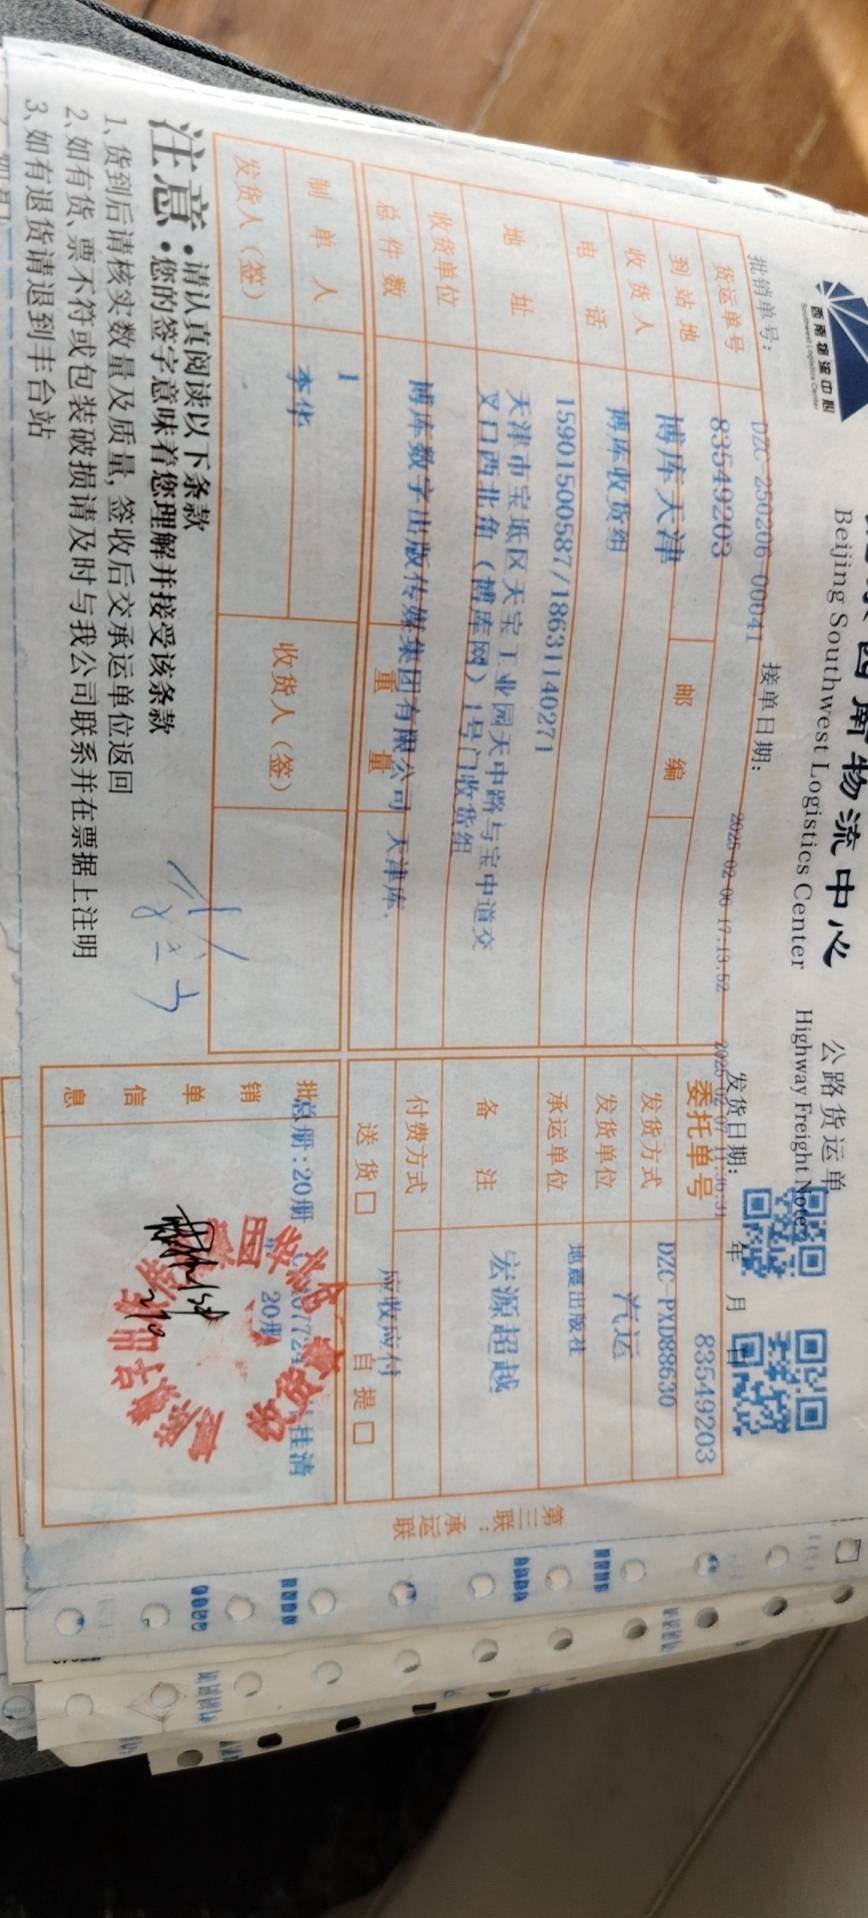 西南物流中心
Southwest Logistics Center
西南物流中心
Beijing Southwest Logistics Center
公路货运单
Highway Freight Note
批销单号： DZC-250206-00041 接单日期： 2025-02-06 17:13:52 发货日期： 年 月 日
货运单号 83549203 委托单号 83549203
到站地 博库天津 邮编 发货方式 DZC-PXD88630
收货人 博库收货组 发货单位 汽运
电话 15901500587/18631140271 承运单位 地震出版社
地址 天津市宝坻区天宝工业园天中路与宝中道交
叉口西北角（博库网）1号门收货组
备注 宏源超越
收货单位 博库数字出版传媒集团有限公司 天津库.
付费方式 应收应付
总件数 1 重量 送货□ 自提□
制单人 李华 收货人（签）
发货人（签）
批销单信息
总册：20册
20册
桂清
第三联：承运联
注意：请认真阅读以下条款
您的签字意味着您理解并接受该条款
1、货到后请核实数量及质量，签收后交承运单位返回
2、如有货、票不符或包装破损请及时与我公司联系并在票据上注明
3、如有退货请退到丰台站